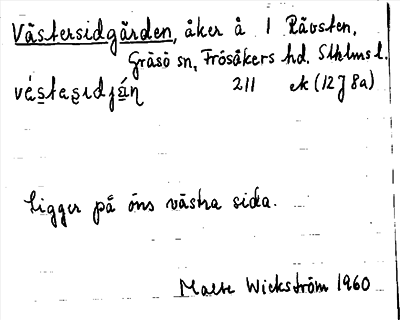 Västersidgården, åker å 1 Rävsten,
Gräsö sn, Frösåkers hd. Sthlms l.
211 ek (12J8a)
Ligger på öns västra sida.
Malte Wickström 1960